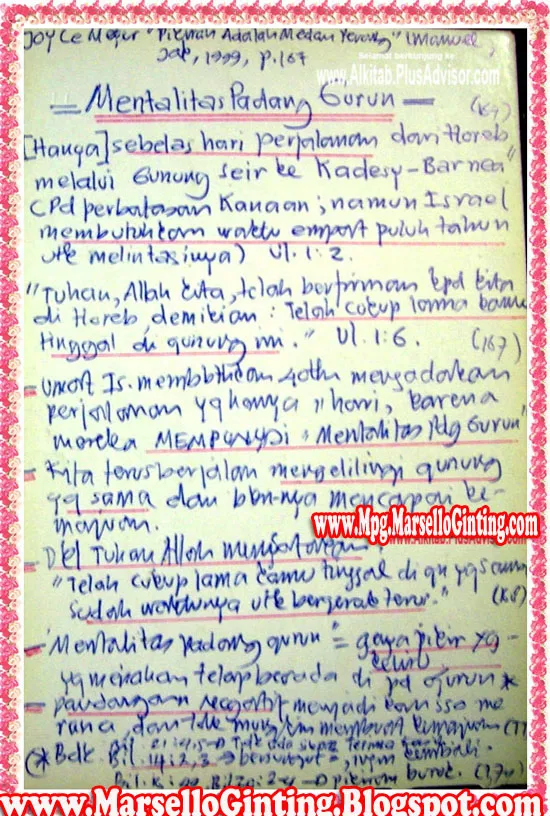 Joyce Meyer "Pikiran Adalah Medan Perang" Imanuel
Jak, 1999, p.167
Selamat berkunjung ke:
www.Alkitab.PlusAdvisor.com
= Mentalitas Padang Gurun =
[Hanya] sebelas hari perjalanan dari Horeb
melalui Gunung Seir ke Kadesy-Barnea"
(Pd perbatasan Kanaan; namun Israel
membutuhkan waktu empat puluh tahun
utk melintasinya) Ul. 1:2.
"Tuhan, Allah kita, telah berfirman kpd kita
di Horeb, demikian: Telah cukup lama kamu
tinggal di gunung ini." Ul. 1:6. (167)
= Umat Is. 40th mengadakan
perjalanan yg hanya 11 hari, karena
mereka MEMPUNYAI "Mentalitas Pdg Gurun"
- Kita terus berjalan mengelilingi gunung
yg sama dan bkn-nya mencapai ke-
majuan.
www.Mpg.MarselloGinting.com
www.Alkitab.PlusAdvisor.com
- Tuhan Allah mengatakan
"Telah cukup lama kamu tinggal di gn yg sama
sudah waktunya utk bergerak terus." (168)
- "Mentalitas padang gurun" = gaya pikir yg
keliru,
yg tetap berada di pd gurun *
- pandangan negatif menjadi
dan tdk mungkin membuat kemajuan
(* Bdk. Bil. 14:2,3 ingin kembali.
pikiran buruk.
www.MarselloGinting.Blogspot.com